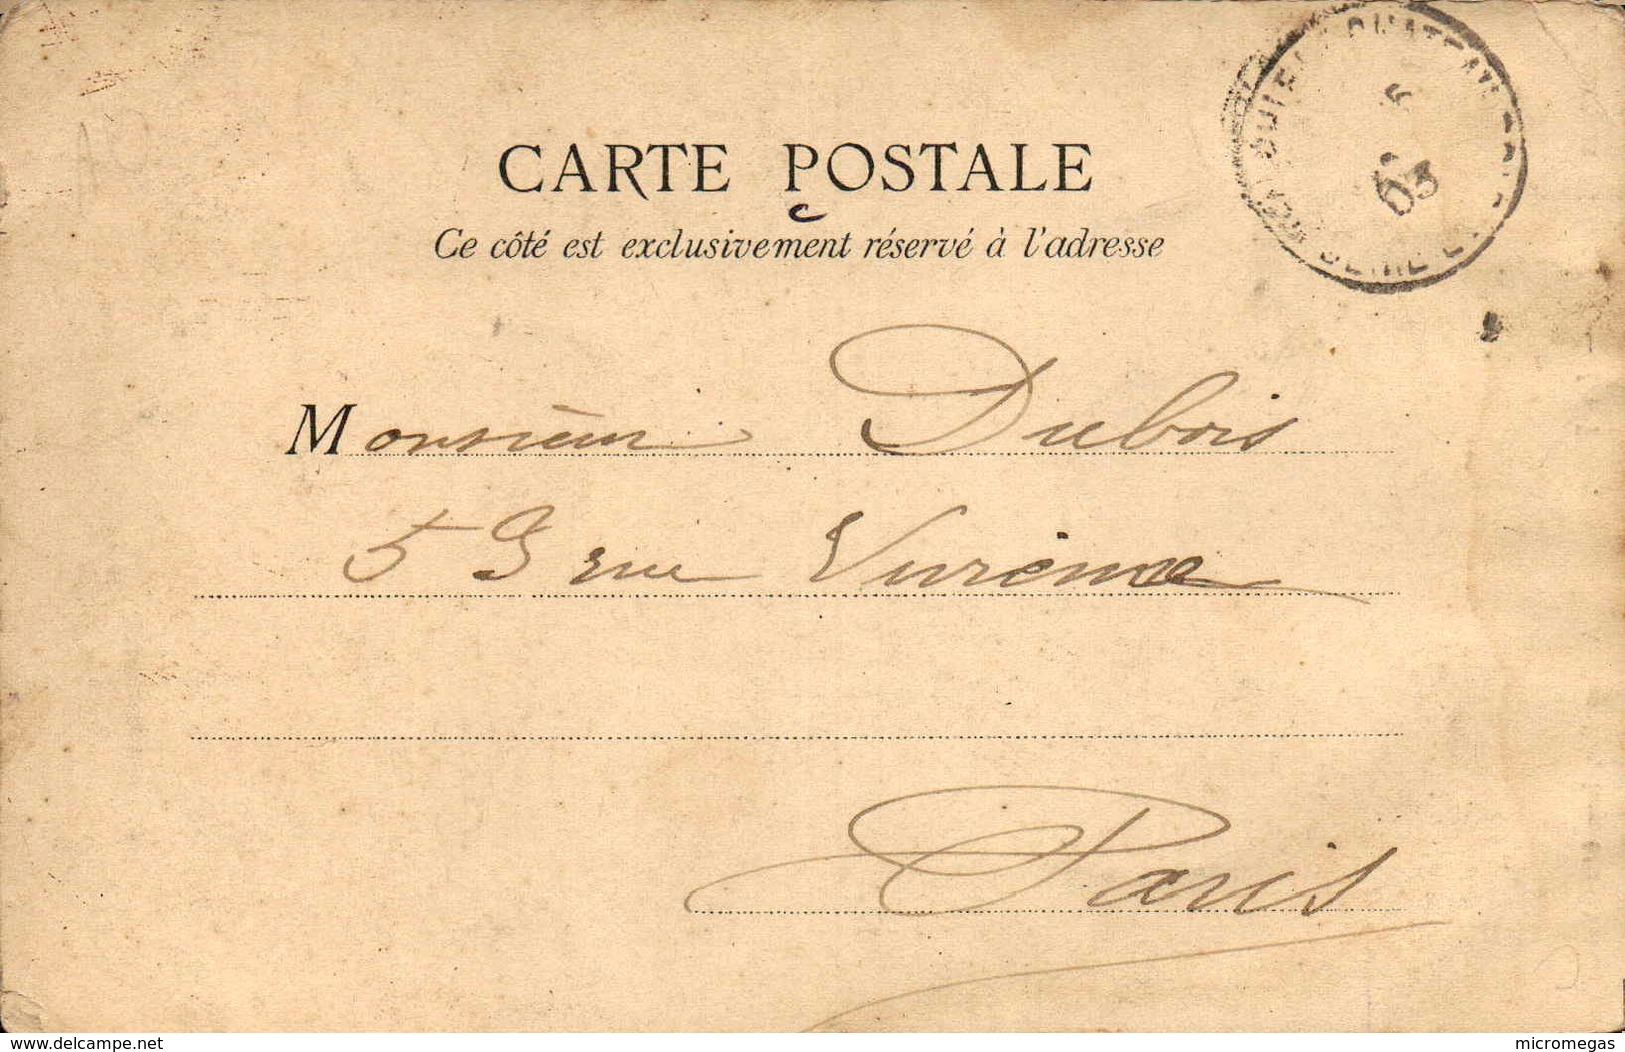 CARTE POSTALE
Ce côté est exclusivement réservé à l'adresse
03
Monsieur Dubois
59 rue Turenne
Paris
www.delcampe.net
micromegas